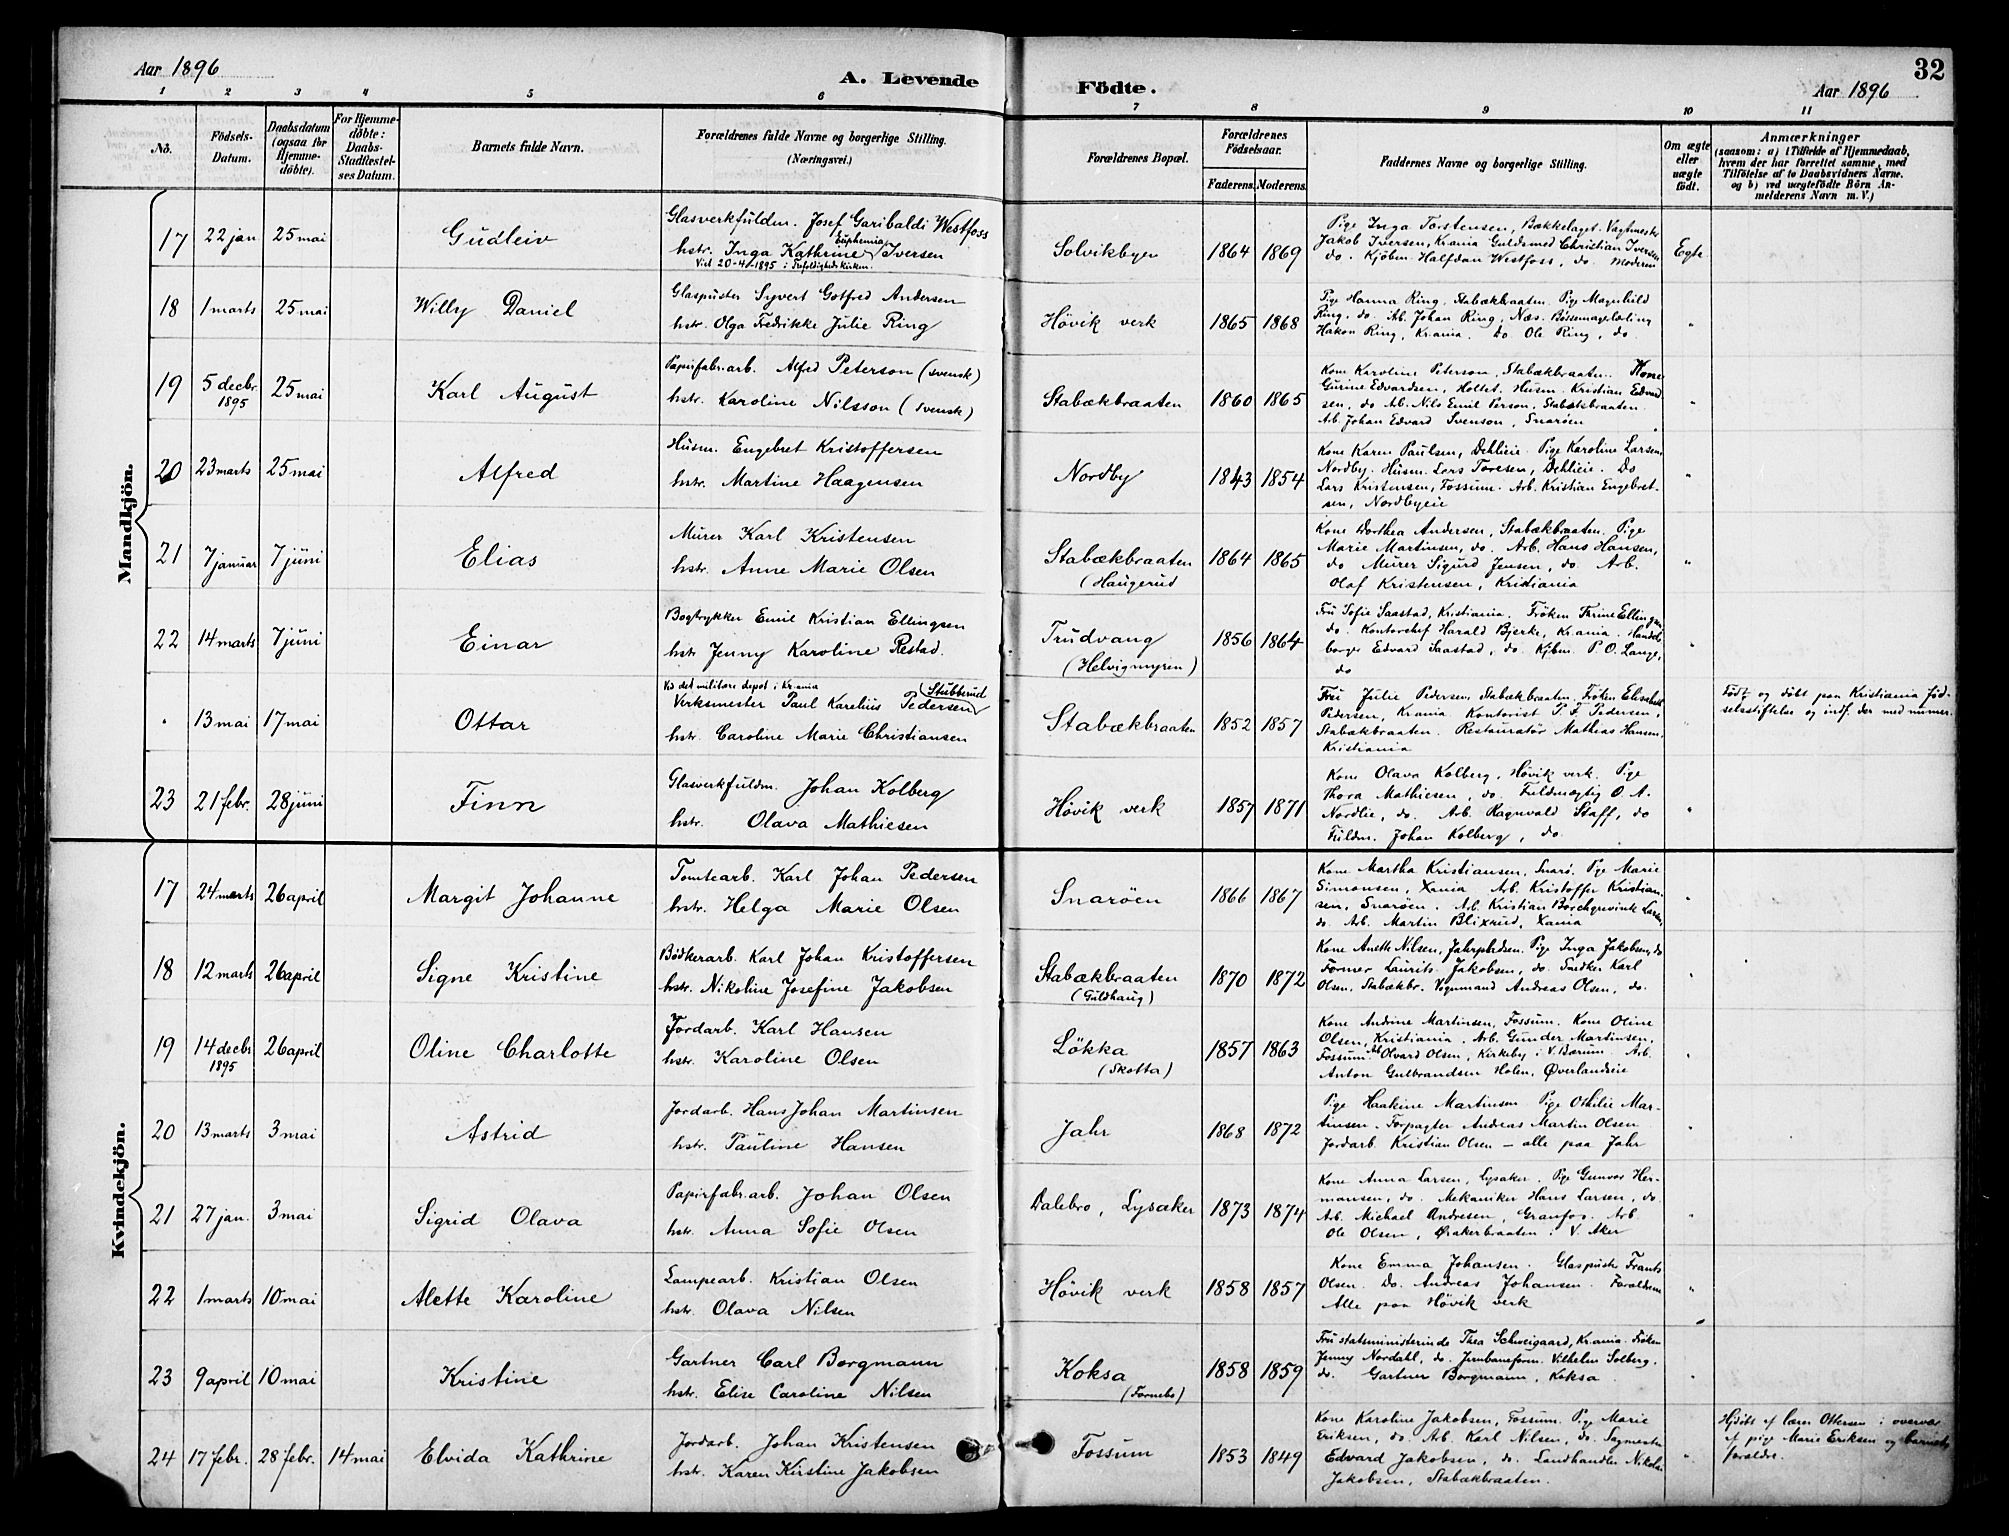 Aar 1896
A. Levende Födte.
32
Aar 1896
1 2 3 4 5 6 7 8 9 10 11
No.
Födsels-Datum.
Daabsdatum (ogsaa for Hjemmedøbte).
For Hjemmedøbte: Daabs-Stadfæstelses Datum.
Barnets fulde Navn.
Forældrenes fulde Navne og borgerlige Stilling. (Næringsvei.)
Forældrenes Bopæl.
Forældrenes Fødselsaar.
Faderens. Moderens.
Faddernes Navne og borgerlige Stilling.
Om ægte eller uægte født.
Anmærkninger
(saasom: a) i Tilfælde af Hjemmedaab, hvem der har forrettet samme, med Tilføielse af to Daabsvidners Navne. og b) ved uægtefødte Børn Anmelderens Navn m. V.)
Mandkjön.
17 22 jan 25 mai Gudleiv
Glasverkfuldm. Josef Garibaldi Westfoss
hstr. Inga Kathrine Euphemia Iversen
Viet 20-4-1895 i Trefoldighedskirken.
Solvikbyen 1864 1869
Pige Inga Torstensen, Bækkelaget. Vagtmester
Jakob Iversen, Krania Guldsmed Christian Iversen
do. Kjøbm. Halfdan Westfoss, do. Moderen
Egte
18 1 marts 25 mai Willy Daniel
Glaspuster Syvert Gotfred Andersen
hstr. Olga Fredrikke Julie Ring
Hövik verk 1865 1868
Pige Hanna Ring, Stabækbraaten. Pige Magnhild
Ring, do. Arb. Johan Ring, Næs. Bössemagerlæling
Hakon Ring, Krania. Do. Ole Ring, do
"
19 5 decbr. 1895 25 mai Karl August
Papirfabr.arb. Alfred Peterson (svensk)
hstr. Karoline Nilsson (svensk)
Stabækbraaten 1860 1865
Kone Karoline Peterson, Stabækbraaten. Kone
Gurine Edvardsen, Hollet. Husm. Kristian Edvard
sen, do Arb. Nils Emil Person, Stabækbraaten
Arb. Johan Edvard Svenson, Snaröen
"
20 23 marts 25 mai Alfred
Husm. Engebret Kristoffersen
hstr. Martine Haagensen
Nordby 1843 1854
Kone Karen Paulsen, Dehlieie. Pige Karoline Larsen,
Nordby. Husm. Lars Toresen, Dehlieie. Do
Lars Kristensen, Fossum. Arb. Kristian Engebret-
sen, Nordbyeie
"
21 7 januar 7 juni Elias
Murer Karl Kristensen
hstr. Anne Marie Olsen
Stabækbraaten (Haugerud 1864 1865
Kone Dorthea Andersen, Stabækbraaten. Pige
Marie Martinsen, do. Arb. Hans Hansen,
do Murer Sigurd Jensen, do. Arb.
Olaf Kristensen, Kristiania
"
22 14 marts 7 juni Einar
Bogtrykker Emil Kristian Ellingsen
hstr. Jenny Karoline Restad.
Trudvang (Helvigmyren) 1856 1864
Fru Sofie Saastad, Kristiania, Frøken Trine Ellingsen
do. Kontorchef Harald Bjerke, Krania. Handels
borger Edvard Saastad, do. Kjbm. P. O. Lange,
do
"
" 13 mai 17 mai Ottar
Ved det militære depot i Krania
Verksmester Paul Karelius Pedersen (Stubberud
hstr. Caroline Marie Christiansen
Stabækbraaten 1852 1857
Fru Julie Pedersen, Stabækbraaten. Frøken Elisabeth
Pedersen, Krania Kontorist P. F. Pedersen,
Stabækbraaten. Restauratør Mathias Hansen,
Kristiania
"
Født og døbt paa Kristiania fød-
selsstiftelse og indf. der med numer.
23 21 febr. 28 juni Finn
Glasverkfuldm. Johan Kolberg
hstr. Olava Mathiesen
Hövik verk 1857 1871
Kone Olava Kolberg, Hövik verk. Pige
Thora Mathiesen, do. Fuldmægtig O. A.
Nordlie, do. Arb. Ragnvald Staff, do
Fuldm. Johan Kolberg, do.
"
Kvindekjön.
17 24 marts 26 april Margit Johanne
Tomtearb. Karl Johan Pedersen
hstr. Helga Marie Olsen
Snaröen 1866 1867
Kone Martha Kristiansen, Snarö. Pige Marie
Simonsen, Xania Arb. Kristoffer Kristian-
sen, Snaröen. Arb. Kristian Borchgrevink Larsen,
do. Arb. Martin Blixrud, Xania
"
18 12 marts 26 april Signe Kristine
Bødkerarb. Karl Johan Kristoffersen
hstr. Nikoline Josefine Jakobsen
Stabækbraaten (Guldhaug) 1870 1872
Kone Anette Nilsen, Jahrpladsen. Pige Inga Jakobsen, do
Former Laurits Jakobsen, do. Snedker Karl
Olsen, Stabækbr. Vognmand Andreas Olsen, do.
"
19 14 decbr 1895 26 april Oline Charlotte
Jordarb. Karl Hansen
hstr. Karoline Olsen
Lökka (Skotta) 1857 1863
Kone Andrine Martinsen, Fossum. Kone Oline
Olsen, Kristiania. Arb. Gunder Martinsen,
Fossum. Arb. Olvard Olsen, Kirkeby i V. Bærum. Arb.
Anton Gulbrandsen Holen, Øverlandseie
"
20 13 marts 3 mai Astrid
Jordarb. Hans Johan Martinsen
hstr. Pauline Hansen
Jahr 1868 1872
Pige Haakine Martinsen. Pige Othilie Mar-
tinsen. Forpagter Andreas Martin Olsen
Jordarb. Kristian Olsen - alle paa Jahr
"
21 27 jan. 3 mai Sigrid Olava
Papirfabr.arb. Johan Olsen
hstr. Anna Sofie Olsen
Dalebro, Lysaker 1873 1874
Kone Anna Larsen, Lysaker. Pige Gunvor Her-
mansen, do. Mekaniker Hans Larsen, do.
Arb. Michael Andresen, Granfos. Arb
Ole Olsen, Ørakerbraaten i V. Aker
"
22 1 marts 10 mai Alette Karoline
Lampearb. Kristian Olsen
hstr. Olava Nilsen
Hövik verk 1858 1857
Kone Emma Johansen. Glaspuster Frants
Olsen. Do. Andreas Johansen. Forældrene
Alle paa Hövik verk
"
23 9 april 10 mai Kristine
Gartner Carl Borgmann
hstr. Elise Caroline Nilsen
Koksa (Fornebo) 1858 1859
Fru statsministerinde Thea Schweigaard, Krania. Frøken
Jenny Nordahl, do. Jernbaneform. Vilhelm Solberg,
do. Gartner Borgmann, Koksa
"
24 17 febr. 28 febr. 14 mai Elvida Kathrine
Jordarb. Johan Kristensen
hstr. Karen Kirstine Jakobsen
Fossum 1853 1849
Kone Karoline Jakobsen, Fossum. Pige Marie
Eriksen, do. Arb. Karl Nilsen, do. Sagmester
Edvard Jakobsen, do. Landhandler Nikolai
Jakobsen, Stabækbraaten.
"
Hjdøbt af lærer Ottersen i overvær
af pige Marie Eriksen og barnets
forældre.